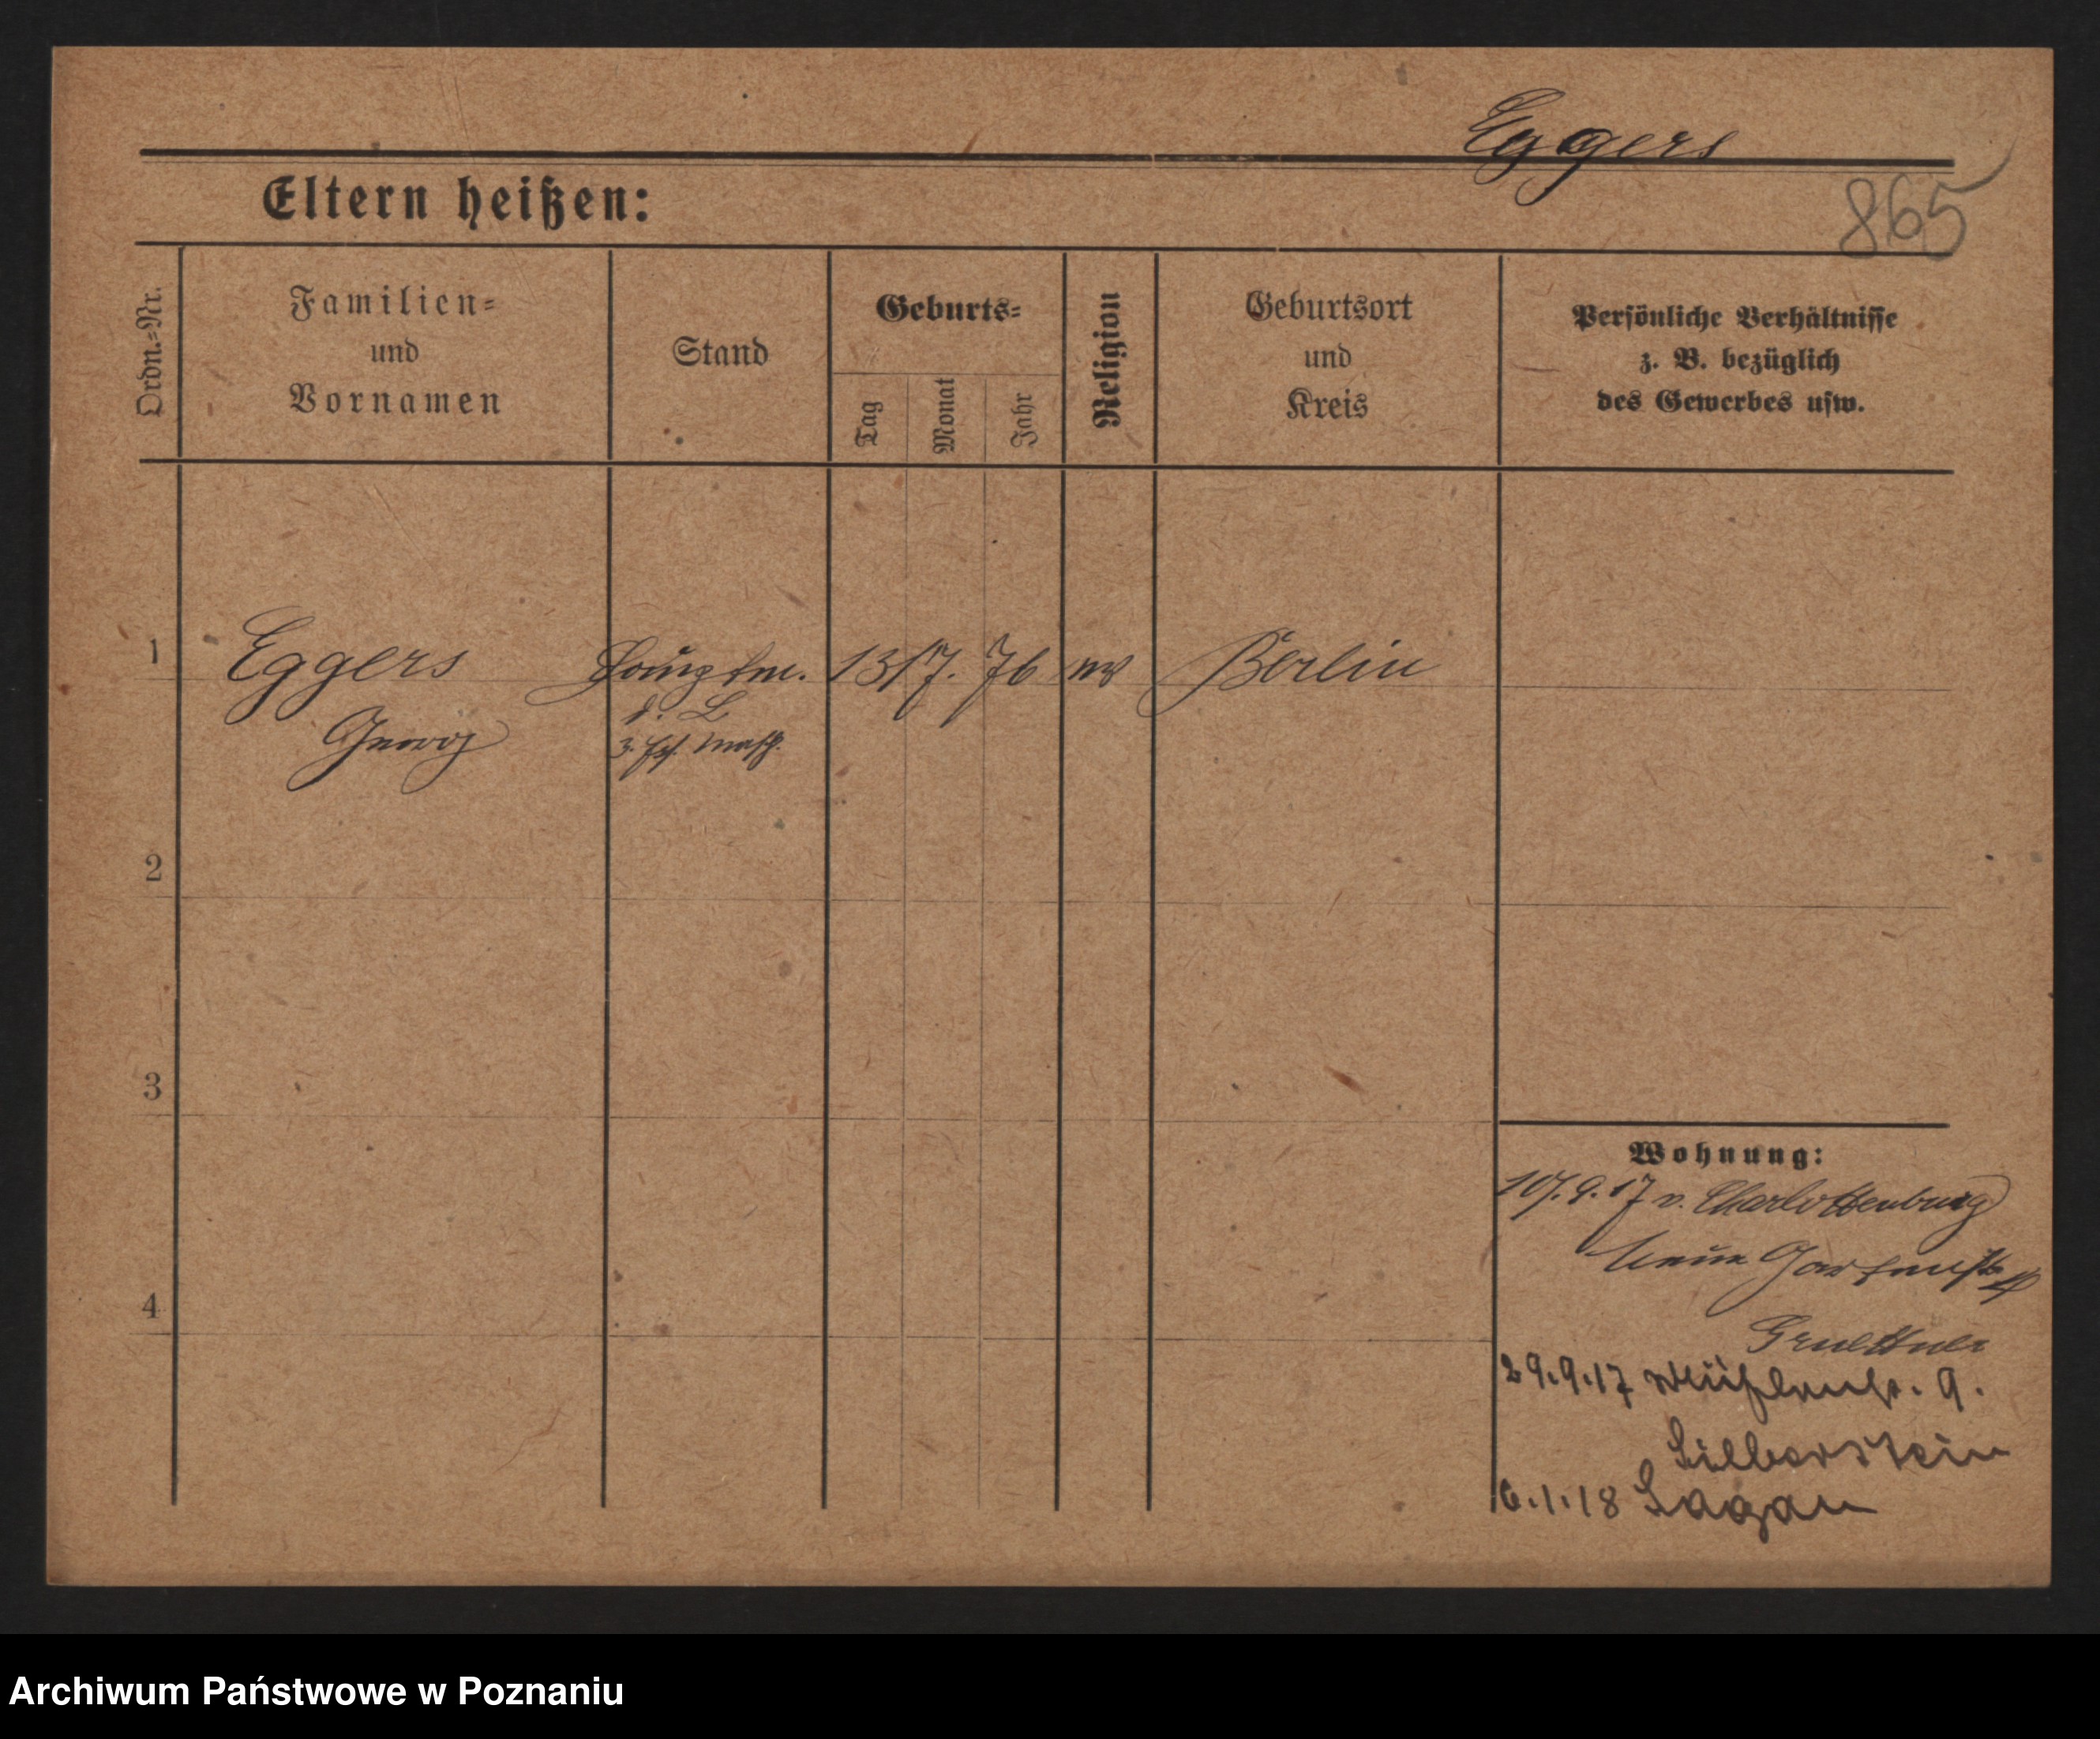 Eggers
865
Eltern heißen:
Ordn.=Nr.
Familien=
und
Vornamen
Stand
Geburts=
Tag
Monat
Jahr
Religion
Geburtsort
und
Kreis
Persönliche Verhältnisse
z. B. bezüglich
des Gewerbes usw.
1
Eggers
Georg
Hauptm.
d. L
13/7. 76
ev
Berlin
2
3
4
Wohnung:
10/.9.17 v. Charlottenburg
Neue Gartenstr
29.9.17 Mühlenstr. 9.
Silberstein
6.1.18 Sagan
Archiwum Państwowe w Poznaniu